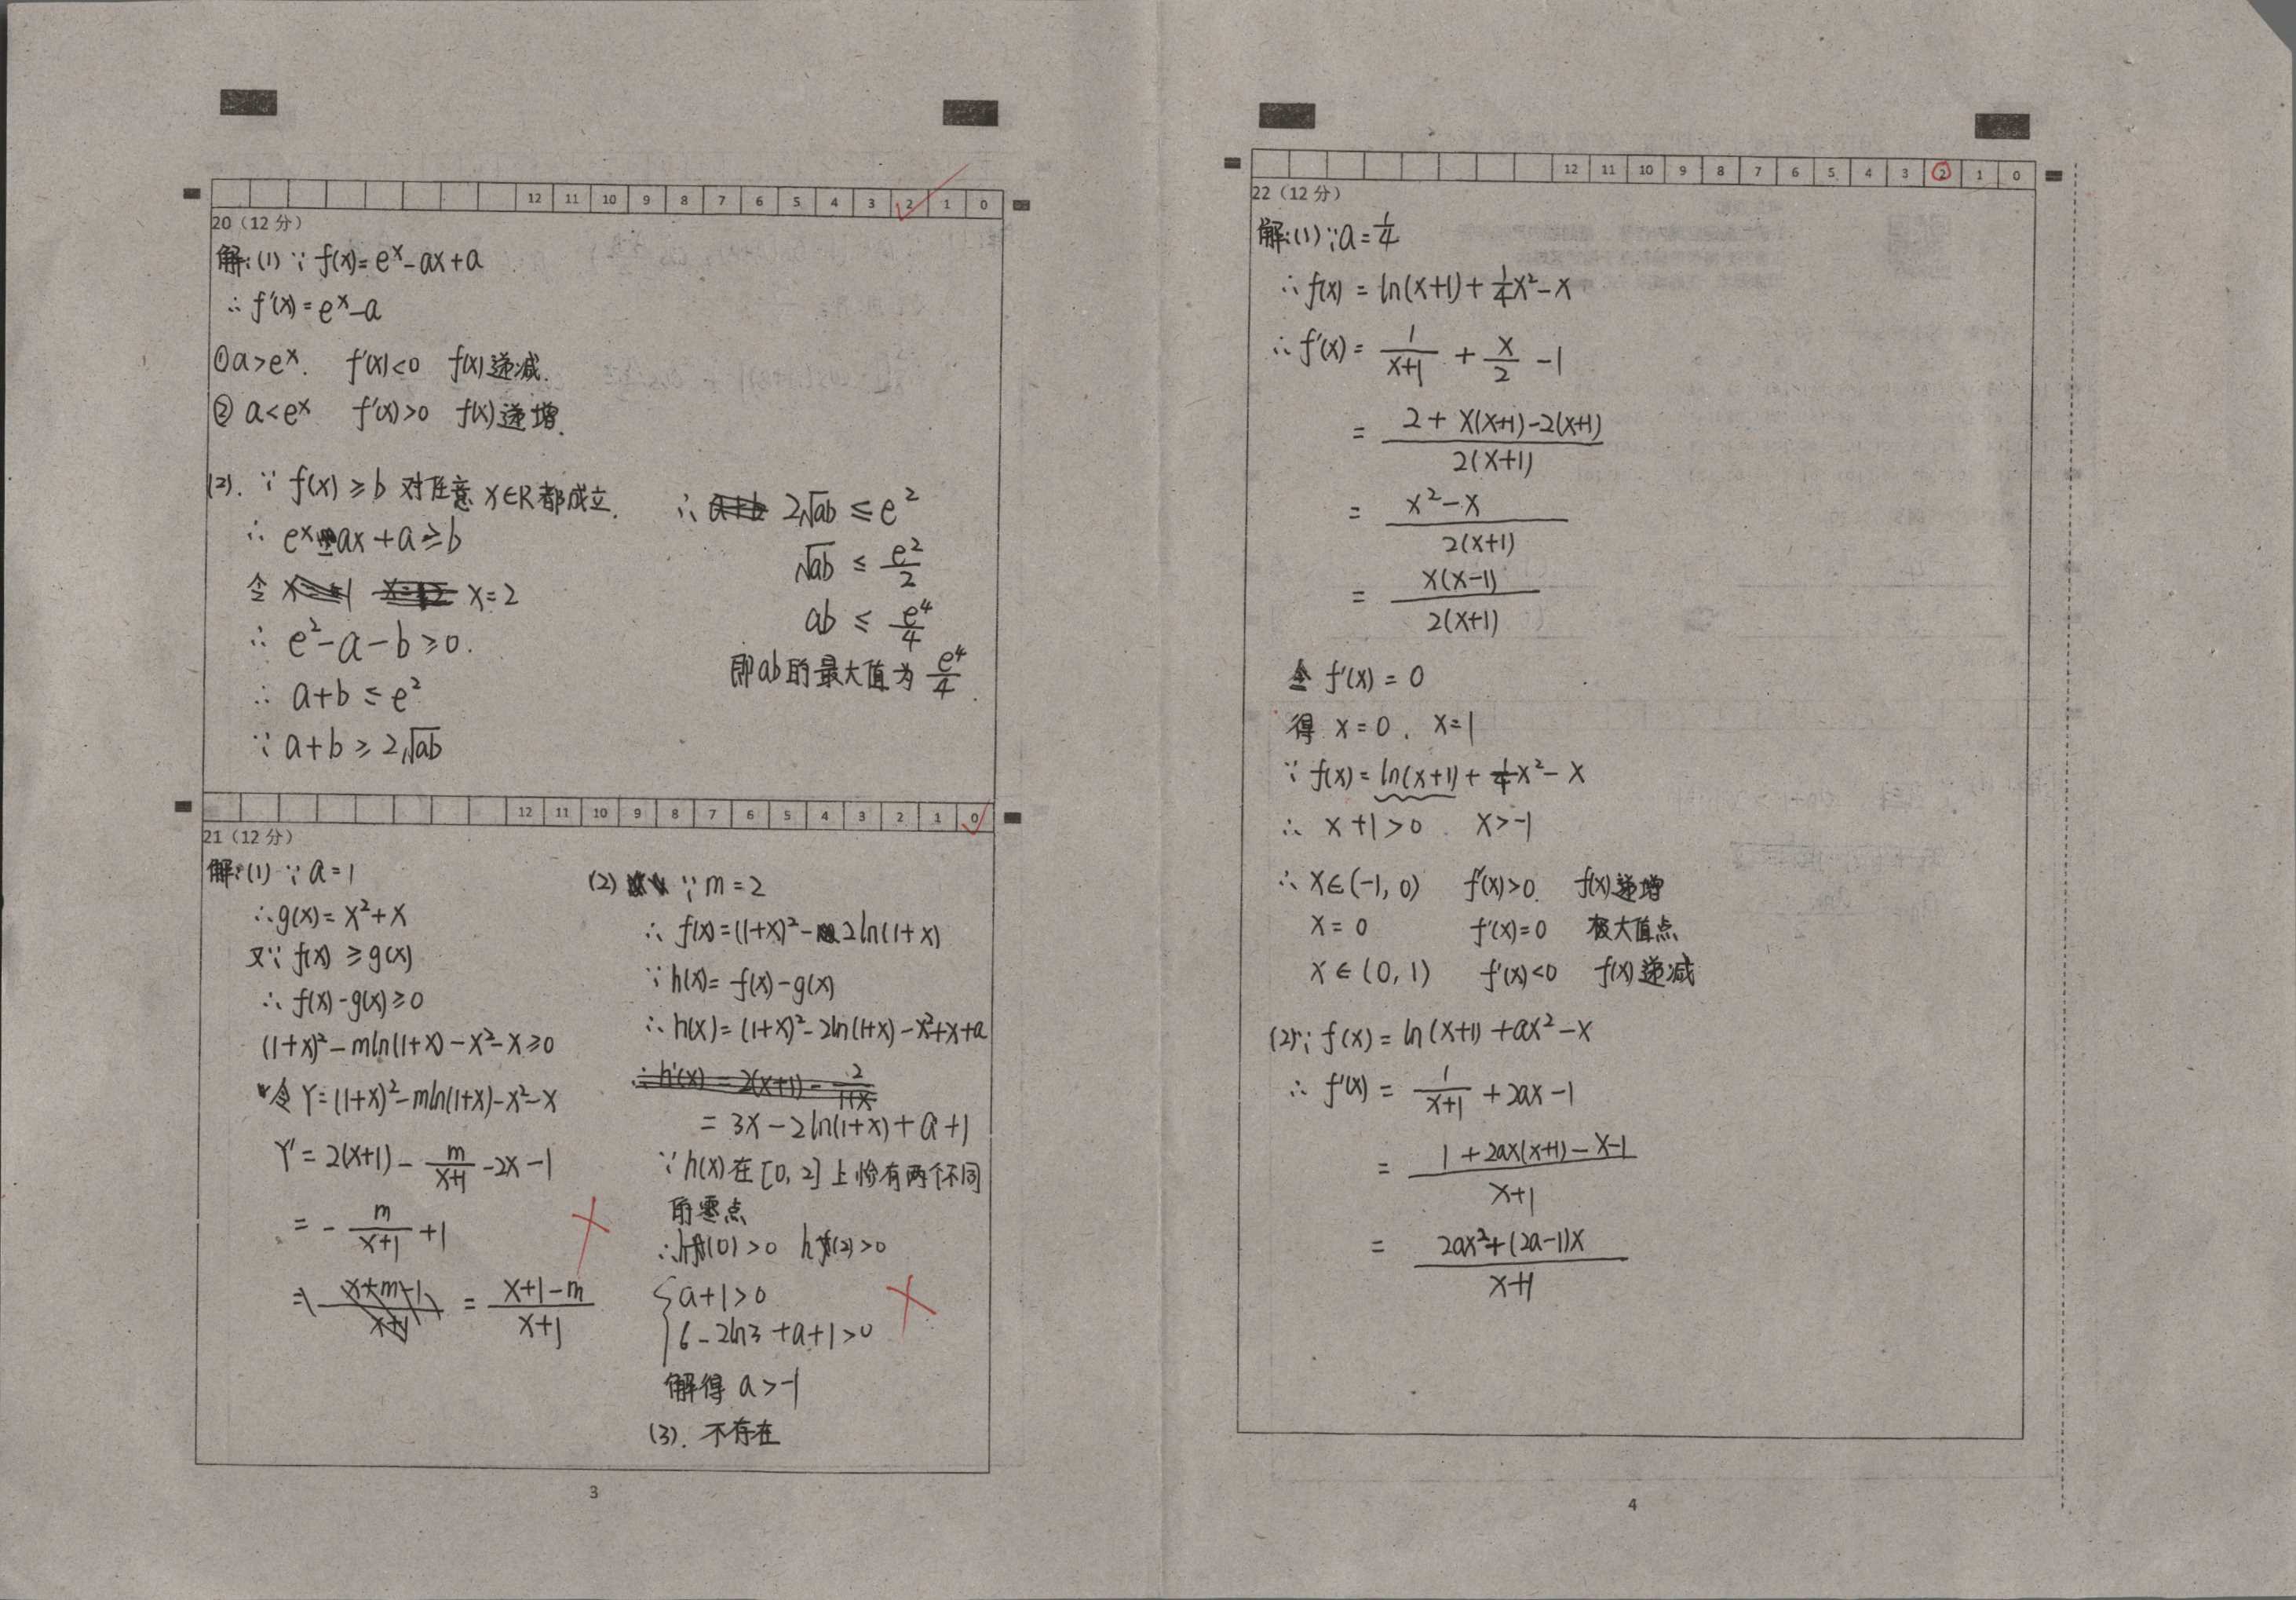 12 11 10 9 8 7 6 5 4 3 2 1 0
20（12 分）
解:(1) ∵ f(x)=eˣ-ax+a
∴ f'(x)=eˣ-a
①a>eˣ. f'(x)<0 f(x)递减.
② a<eˣ f'(x)>0 f(x)递增.
(2). ∵ f(x)≥b 对任意 x∈R都成立.
∴ eˣ-ax+a≥b
令 x=2
∴ e²-a-b≥0.
∴ a+b≤e²
∵ a+b≥2√ab
∴ 2√ab ≤e²
√ab ≤ e²/2
ab ≤ e⁴/4
即ab的最大值为 e⁴/4.
12 11 10 9 8 7 6 5 4 3 2 1 0
21（12 分）
解:(1) ∵ a=1
∴g(x)=x²+x
又∵ f(x)≥g(x)
∴ f(x)-g(x)≥0
(1+x)²-mln(1+x)-x²-x≥0
令Y=(1+x)²-mln(1+x)-x²-x
Y'=2(x+1)-m/(x+1)-2x-1
=-m/(x+1)+1
=(x+1-m)/(x+1)
(2) ∵m=2
∴ f(x)=(1+x)²-2ln(1+x)
∵h(x)=f(x)-g(x)
∴h(x)=(1+x)²-2ln(1+x)-x²+x+a
=3x-2ln(1+x)+a+1
∵h(x)在[0,2]上恰有两个不同
的零点
∴h(0)>0 h(2)>0
{a+1>0
6-2ln3+a+1>0
解得 a>-1
(3). 不存在
3
12 11 10 9 8 7 6 5 4 3 2 1 0
22（12 分）
解:(1)∵a=1/4
∴f(x)=ln(x+1)+1/4x²-x
∴f'(x)=1/(x+1)+x/2-1
=(2+x(x+1)-2(x+1))/(2(x+1))
=(x²-x)/(2(x+1))
=x(x-1)/(2(x+1))
令 f'(x)=0
得 x=0. x=1
∵ f(x)=ln(x+1)+1/4x²-x
∴ x+1>0. x>-1
∴ x∈(-1,0) f'(x)>0. f(x)递增
x=0 f'(x)=0 极大值点
x∈(0,1) f'(x)<0 f(x)递减
(2)∵ f(x)=ln(x+1)+ax²-x
∴ f'(x)=1/(x+1)+2ax-1
=(1+2ax(x+1)-x-1)/(x+1)
=(2ax²+(2a-1)x)/(x+1)
4